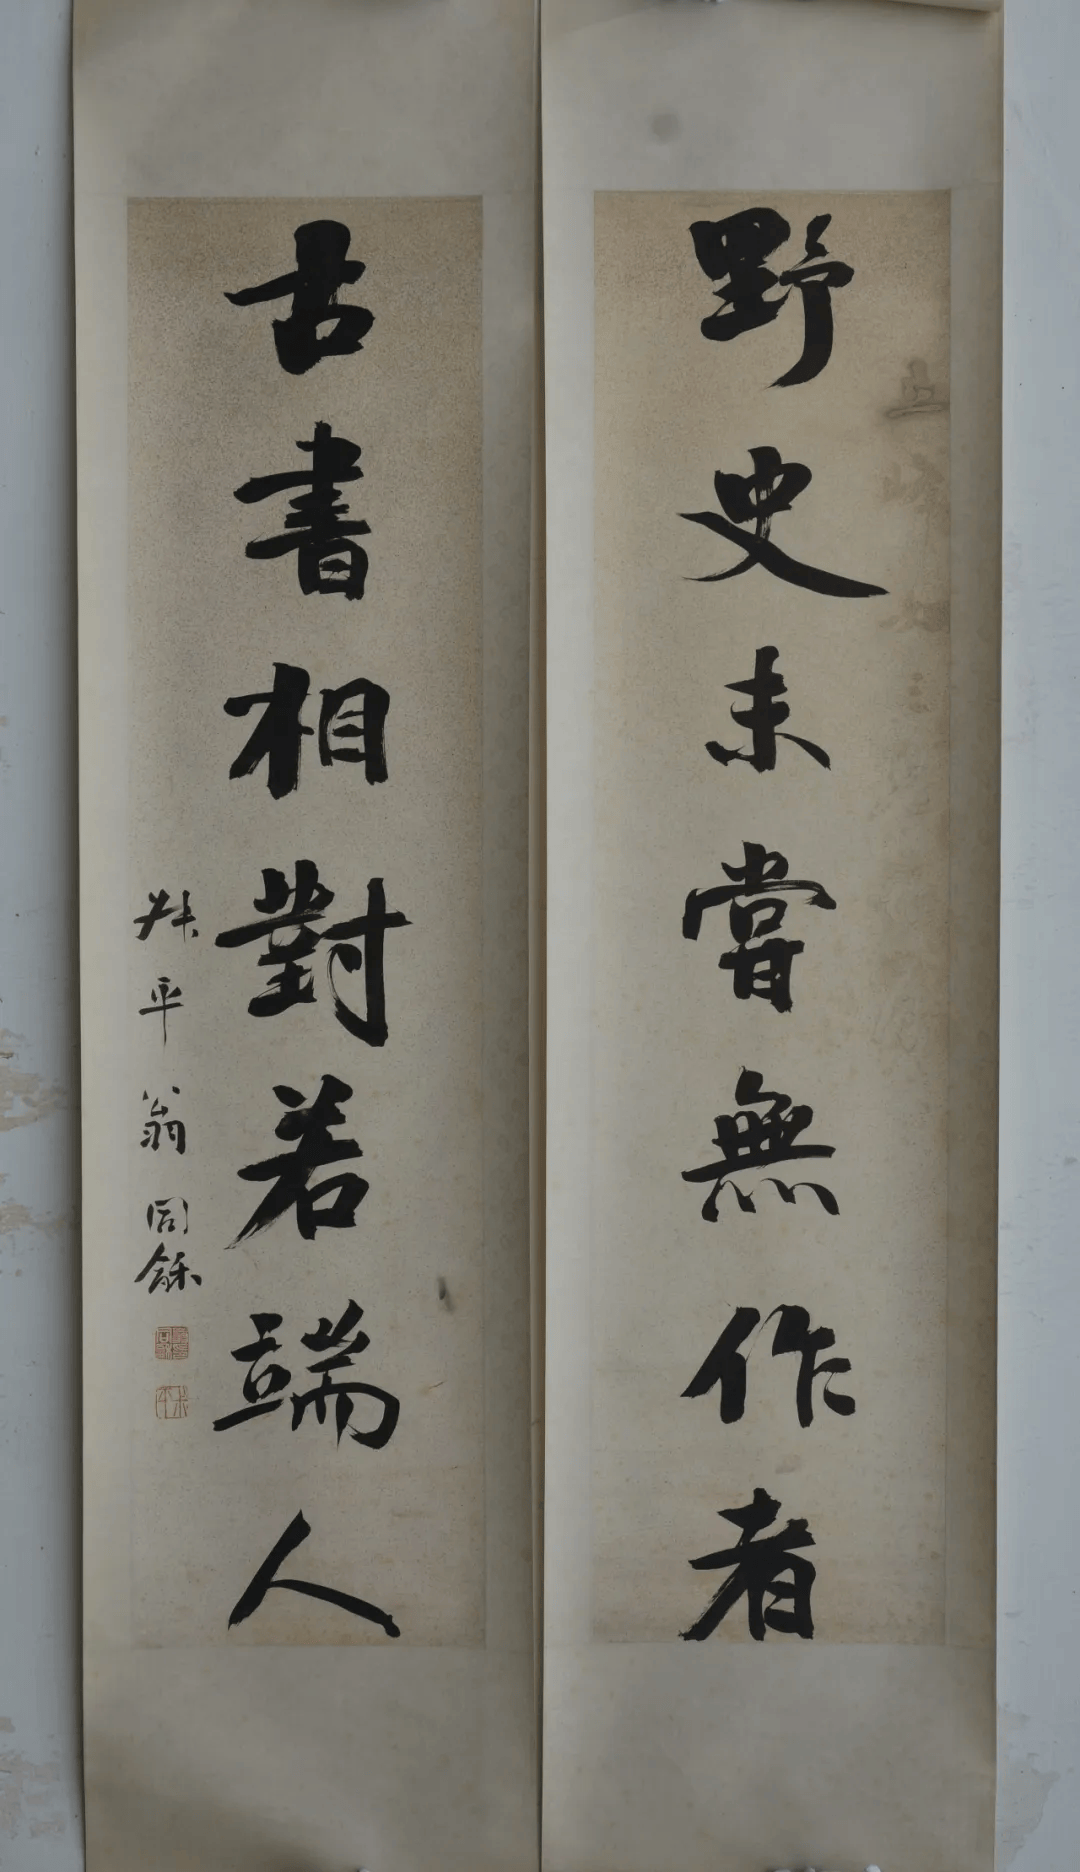 野史未嘗無作者
古書相對若端人
叔平翁同龢